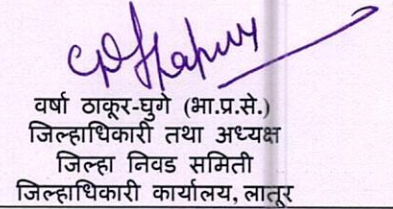 वर्षा ठाकूर-घुगे (भा.प्र.से.)
जिल्हाधिकारी तथा अध्यक्ष
जिल्हा निवड समिती
जिल्हाधिकारी कार्यालय, लातूर